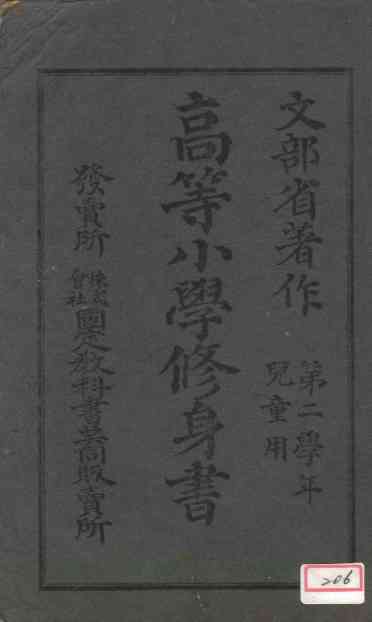 文部省著作
第二學年
兒童用
高等小學修身書
發賣所 株式會社 國定教科書共同販賣所
206